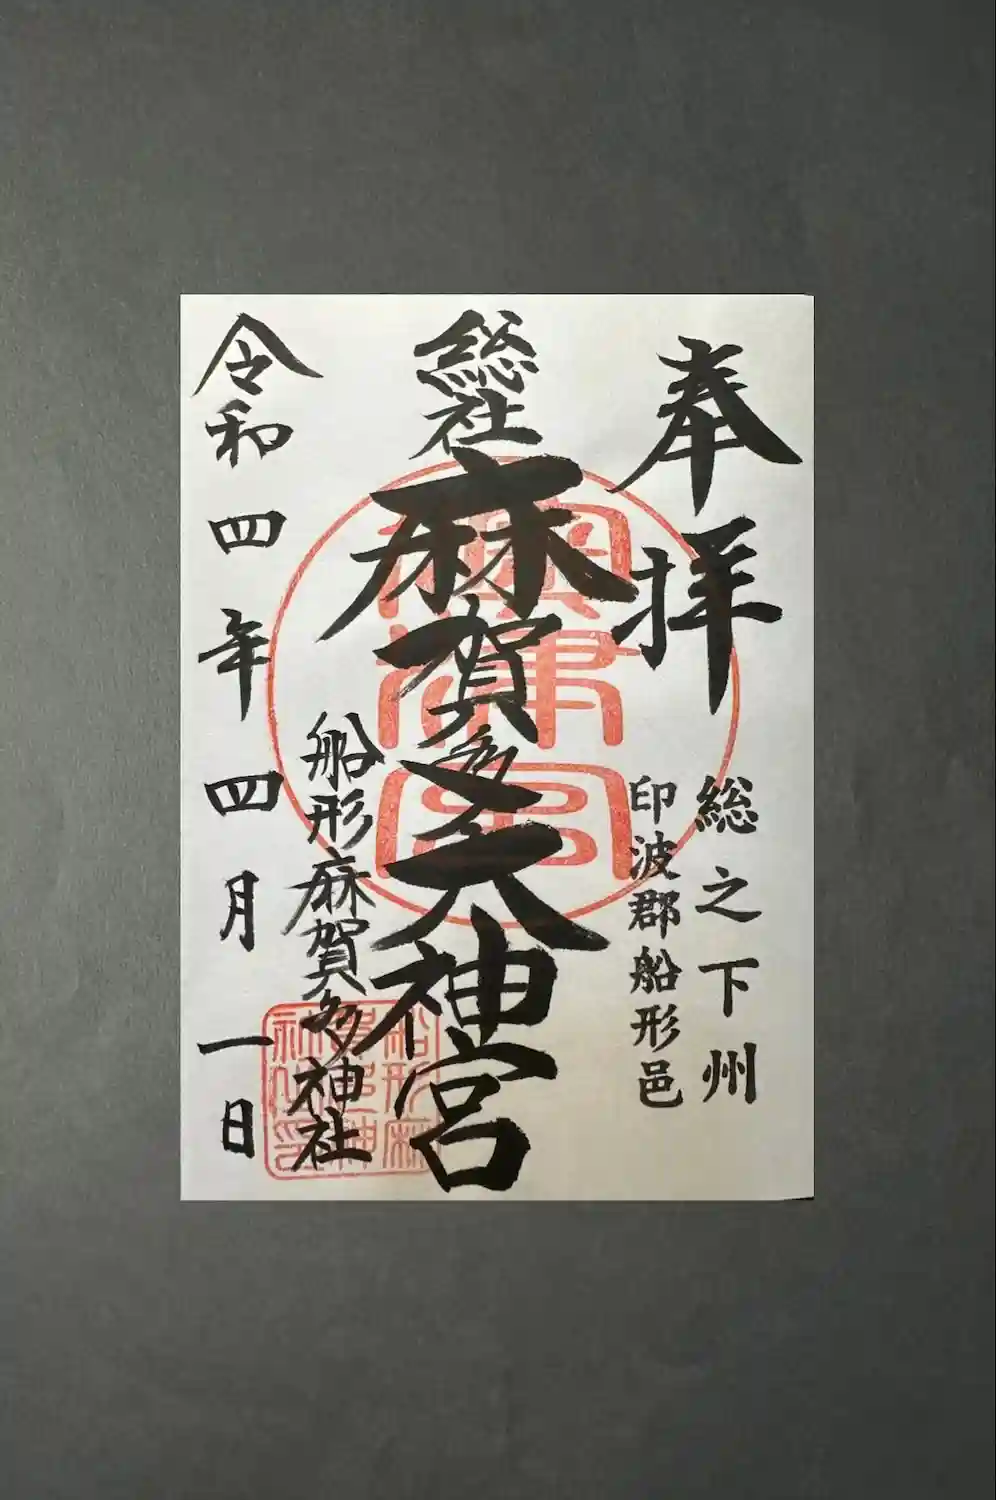 奉拝
総之下州
印波郡船形邑
総社
麻賀多大神宮
船形麻賀多神社
令和四年四月一日